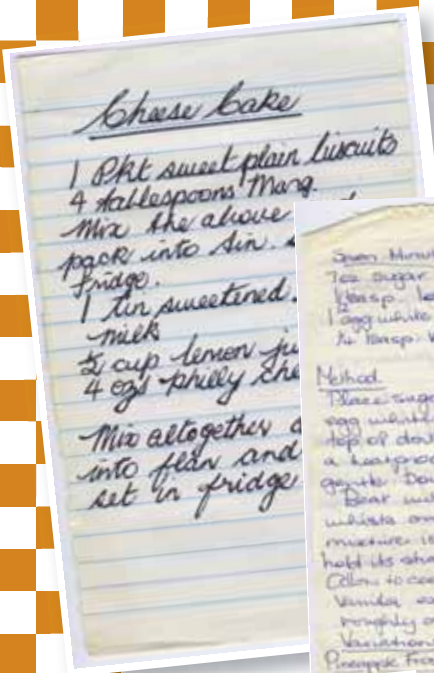 Cheese Cake
1 Pkt sweet plain biscuits
4 tablespoons Marg.
Mix the above
pack into tin.
fridge.
1 tin sweetened
milk
½ cup lemon
4 ozs philly
Mix altogether
into flan and
set in fridge
Seven Minut
7oz sugar
1 egg white
Method
Place suga
egg white
top of dou
a heatproo
gentle
Beat
whisk
mixture is
hold its sha
Vanilla
roughly
Variation
Pineapple Fros